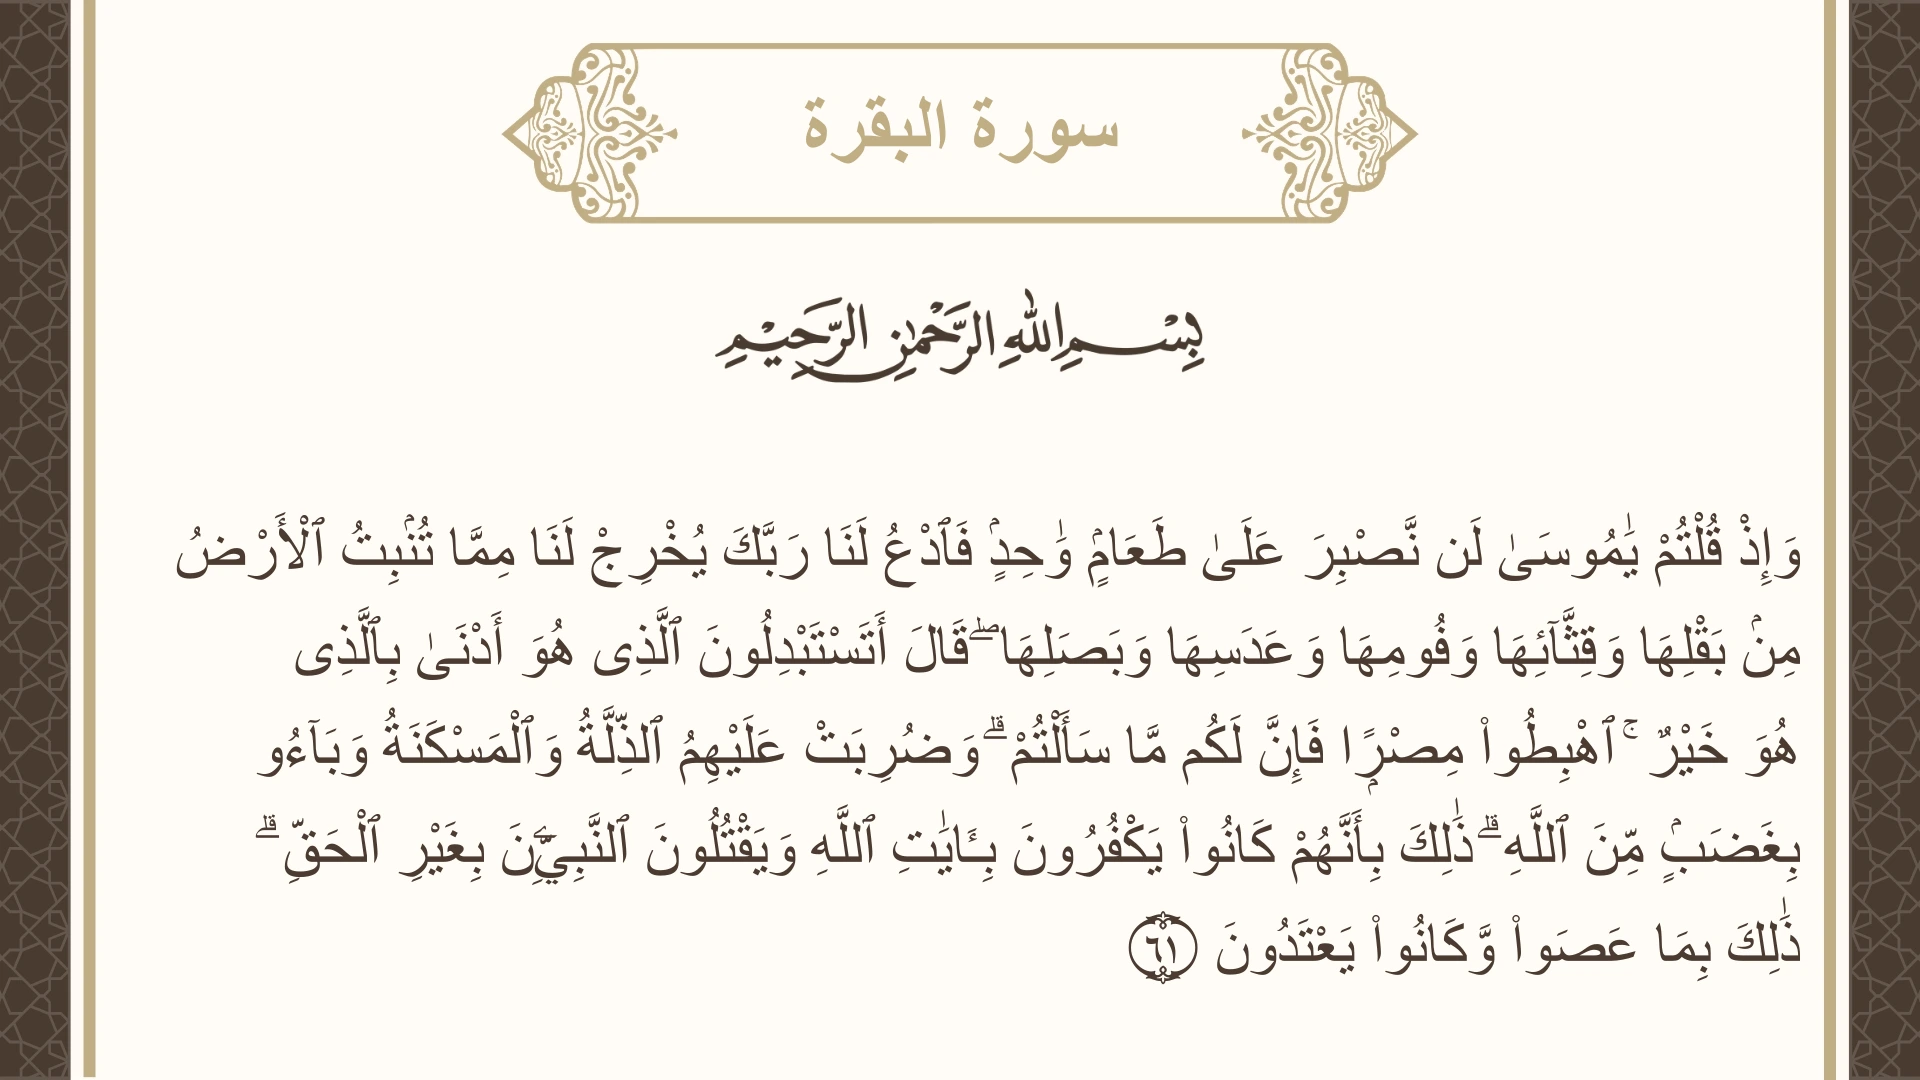 سورة البقرة
بِسْمِ اللهِ الرَّحْمٰنِ الرَّحِيْمِ
وَإِذْ قُلْتُمْ يَٰمُوسَىٰ لَن نَّصْبِرَ عَلَىٰ طَعَامٍۢ وَٰحِدٍۢ فَٱدْعُ لَنَا رَبَّكَ يُخْرِجْ لَنَا مِمَّا تُنۢبِتُ ٱلْأَرْضُ
مِنۢ بَقْلِهَا وَقِثَّآئِهَا وَفُومِهَا وَعَدَسِهَا وَبَصَلِهَا ۖ قَالَ أَتَسْتَبْدِلُونَ ٱلَّذِى هُوَ أَدْنَىٰ بِٱلَّذِى
هُوَ خَيْرٌ ۚ ٱهْبِطُوا۟ مِصْرًۭا فَإِنَّ لَكُم مَّا سَأَلْتُمْ ۗ وَضُرِبَتْ عَلَيْهِمُ ٱلذِّلَّةُ وَٱلْمَسْكَنَةُ وَبَآءُو
بِغَضَبٍۢ مِّنَ ٱللَّهِ ۗ ذَٰلِكَ بِأَنَّهُمْ كَانُوا۟ يَكْفُرُونَ بِـَٔايَٰتِ ٱللَّهِ وَيَقْتُلُونَ ٱلنَّبِيِّۦنَ بِغَيْرِ ٱلْحَقِّ ۗ
ذَٰلِكَ بِمَا عَصَوا۟ وَّكَانُوا۟ يَعْتَدُونَ ٦١